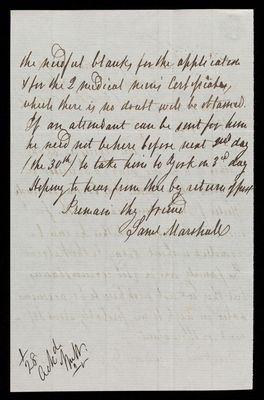 the needful blanks for the application
& for the 2 medical men's Certificates,
which there is no doubt will be obtained.
If an attendant can be sent for him
he need not be here before next 2nd day
(the 30th) to take him to York on 3rd day
Hoping to hear from thee by return of post
I remain thy friend
Saml Marshall
1/28
Ackd